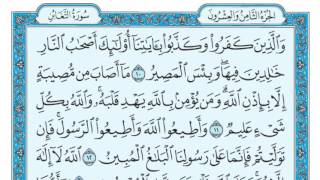 الجُزْءُ الثَّامِنُ وَالعِشْرُونَ سُورَةُ التَّغَابُن
وَٱلَّذِينَ كَفَرُوا۟ وَكَذَّبُوا۟ بِـَٔايَٰتِنَآ أُو۟لَٰٓئِكَ أَصْحَٰبُ ٱلنَّارِ
خَٰلِدِينَ فِيهَا ۖ وَبِئْسَ ٱلْمَصِيرُ ١٠ مَآ أَصَابَ مِن مُّصِيبَةٍ
إِلَّا بِإِذْنِ ٱللَّهِ ۗ وَمَن يُؤْمِنۢ بِٱللَّهِ يَهْدِ قَلْبَهُۥ ۚ وَٱللَّهُ بِكُلِّ
شَىْءٍ عَلِيمٌ ١١ وَأَطِيعُوا۟ ٱللَّهَ وَأَطِيعُوا۟ ٱلرَّسُولَ ۚ فَإِن
تَوَلَّيْتُمْ فَإِنَّمَا عَلَىٰ رَسُولِنَا ٱلْبَلَٰغُ ٱلْمُبِينُ ١٢ ٱللَّهُ لَآ إِلَٰهَ إِلَّا